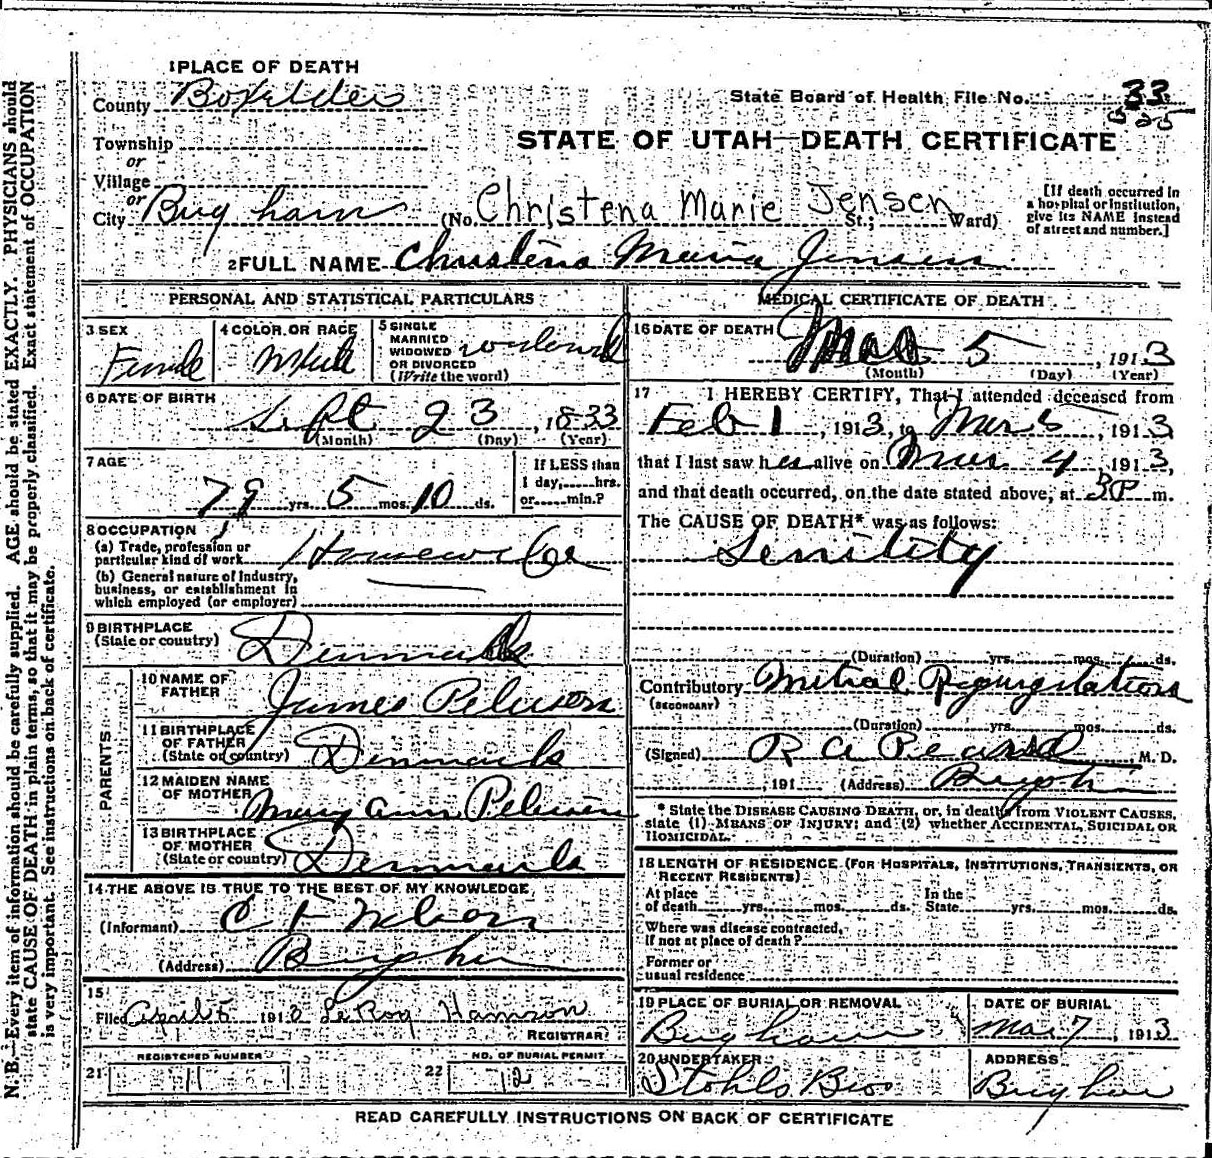 1 PLACE OF DEATH
County Boxelder
State Board of Health File No. 33
STATE OF UTAH—DEATH CERTIFICATE
Township
or
Village
or
City Brigham (No. Christena Marie Jensen St.; Ward)
[If death occurred in
a hospital or institution,
give its NAME instead
of street and number.]
2 FULL NAME Christena Maria Jensen
PERSONAL AND STATISTICAL PARTICULARS
3 SEX
Female
4 COLOR OR RACE
White
5 SINGLE
MARRIED
WIDOWED
OR DIVORCED
(Write the word)
widowed
6 DATE OF BIRTH
Sept 23, 1833
(Month) (Day) (Year)
7 AGE
79 yrs. 5 mos. 10 ds.
If LESS than
1 day, hrs.
or min.?
8 OCCUPATION
(a) Trade, profession or
particular kind of work Housewife
(b) General nature of industry,
business, or establishment in
which employed (or employer)
9 BIRTHPLACE
(State or country) Denmark
PARENTS
10 NAME OF
FATHER James Peterson
11 BIRTHPLACE
OF FATHER
(State or country) Denmark
12 MAIDEN NAME
OF MOTHER Mary Ann Peterson
13 BIRTHPLACE
OF MOTHER
(State or country) Denmark
14 THE ABOVE IS TRUE TO THE BEST OF MY KNOWLEDGE
(Informant) C F Nelson
(Address) Brigham
15
Filed April 5 1913 LeRoy Hamson
REGISTRAR
REGISTERED NUMBER
21 11
NO. OF BURIAL PERMIT
22 12
MEDICAL CERTIFICATE OF DEATH
16 DATE OF DEATH
Mar 5, 1913
(Month) (Day) (Year)
17 I HEREBY CERTIFY, That I attended deceased from
Feb 1, 1913, to Mar 5, 1913,
that I last saw her alive on Mar 4 1913,
and that death occurred, on the date stated above, at 3 P m.
The CAUSE OF DEATH* was as follows:
Senility
(Duration) yrs. mos. ds.
Contributory Mitral Regurgitation
(SECONDARY)
(Duration) yrs. mos. ds.
(Signed) R A Pearse, M. D.
, 191 (Address) Brigham
* State the DISEASE CAUSING DEATH, or, in deaths from VIOLENT CAUSES,
state (1) MEANS OF INJURY; and (2) whether ACCIDENTAL, SUICIDAL OR
HOMICIDAL.
18 LENGTH OF RESIDENCE (FOR HOSPITALS, INSTITUTIONS, TRANSIENTS, OR
RECENT RESIDENTS)
At place
of death yrs. mos. ds.
In the
State yrs. mos. ds.
Where was disease contracted,
if not at place of death?
Former or
usual residence
19 PLACE OF BURIAL OR REMOVAL
Brigham
DATE OF BURIAL
Mar 7, 1913
20 UNDERTAKER
Stohls Bros
ADDRESS
Brigham
READ CAREFULLY INSTRUCTIONS ON BACK OF CERTIFICATE
N. B.—Every item of information should be carefully supplied. AGE should be stated EXACTLY. PHYSICIANS should
state CAUSE OF DEATH in plain terms, so that it may be properly classified. Exact statement of OCCUPATION
is very important. See instructions on back of certificate.